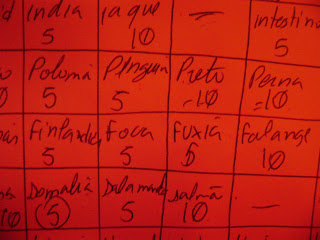 d India raque — intestino
5 10 5
o Polonia Pinguin Preto Perna
0 5 5 -10 =10
Finlandia Foca Fuxia Falange
5 5 5 10
Somalia Salamandra Salmão —
10 5 5 10